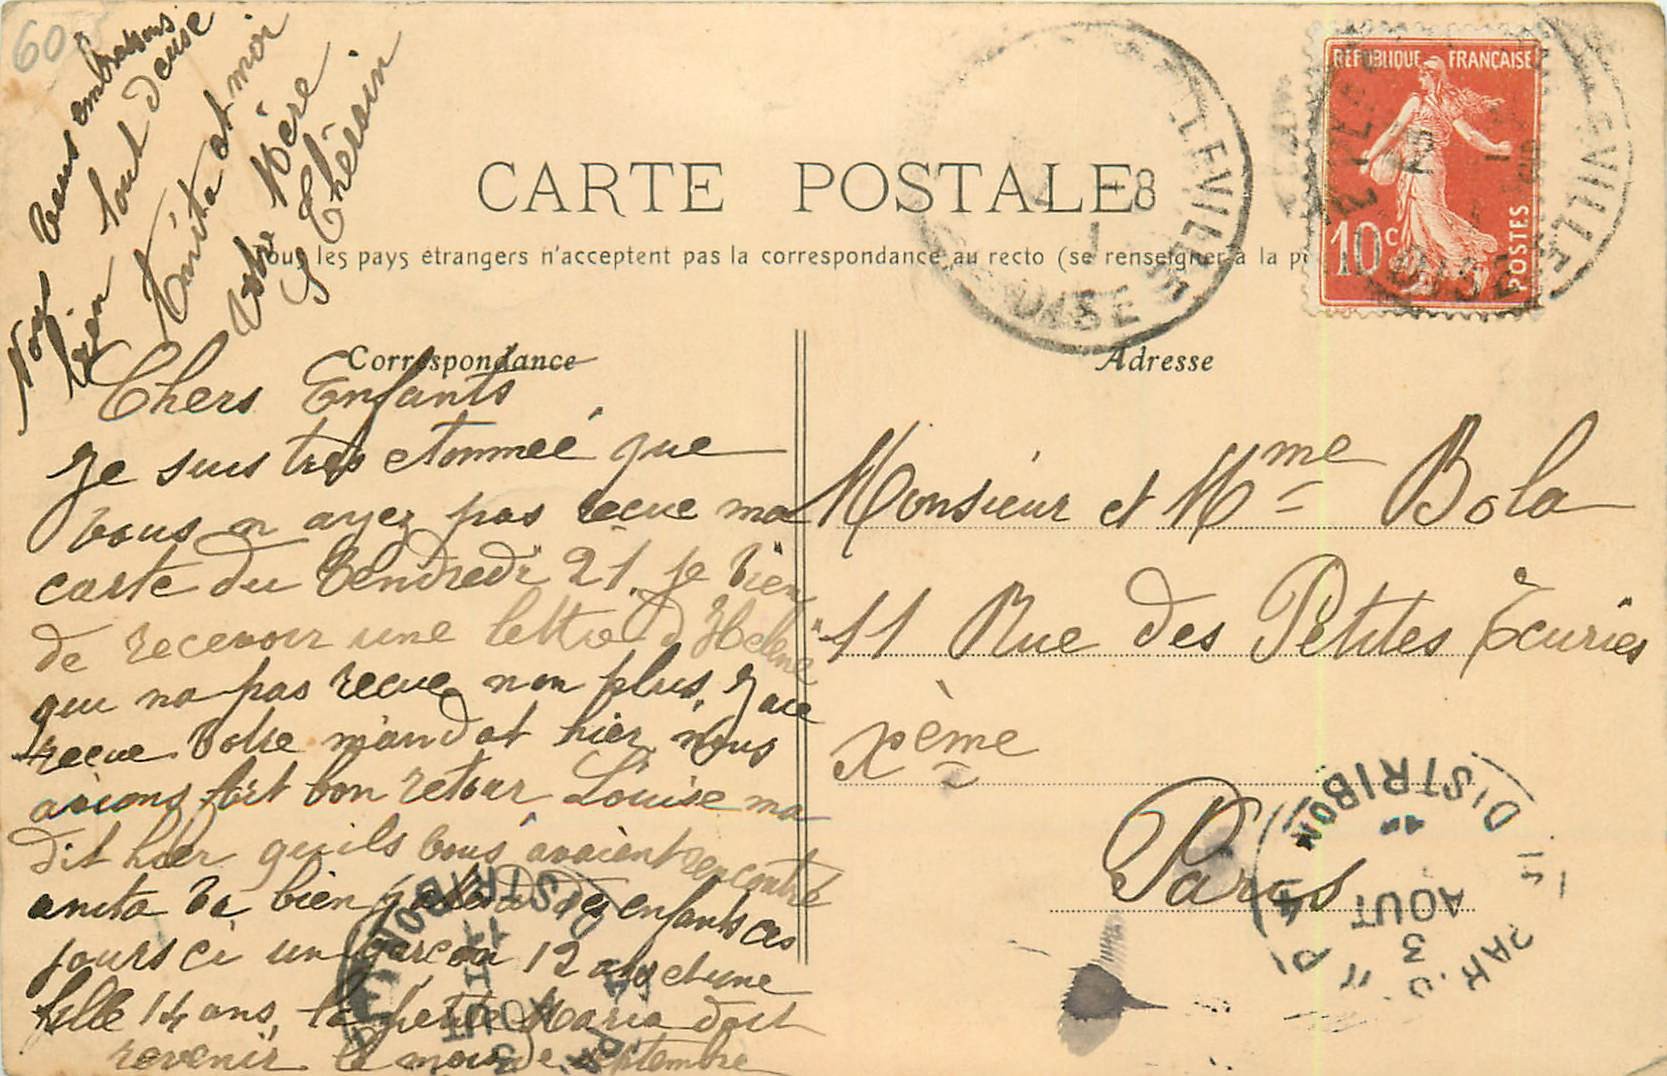 60
Nous vous embrassons
bien tout deuse
Anita et moi
Votre Mére
S Thérsin
CARTE POSTALE
Tous les pays étrangers n'acceptent pas la correspondance au recto (se renseigner à la
Correspondance
Adresse
REPUBLIQUE FRANÇAISE
10c
POSTES
LLEVILLE
OISE
8
Chers Enfants
Je suis très etonneé que
vous n ayez pas recue ma
carte du Vendredi 21. je vien
de recevoir une lettre d'Helene
qui na pas recue non plus, J ai
recue votre mandat hier, nous
avions fait bon retour Louise ma
dit hier qu'ils vous avaient rencontré
anita va bien des enfants ces
jours ci un garçon 12 ans et une
fille 14 ans, la petite Maria doit
revenir le mois de septembre
Monsieur et Mme Bola
11 Rue des Petites Écuries
Xème
Paris
DISTRIBON
PAR
3
AOUT
DISTRIBON
3
AOUT